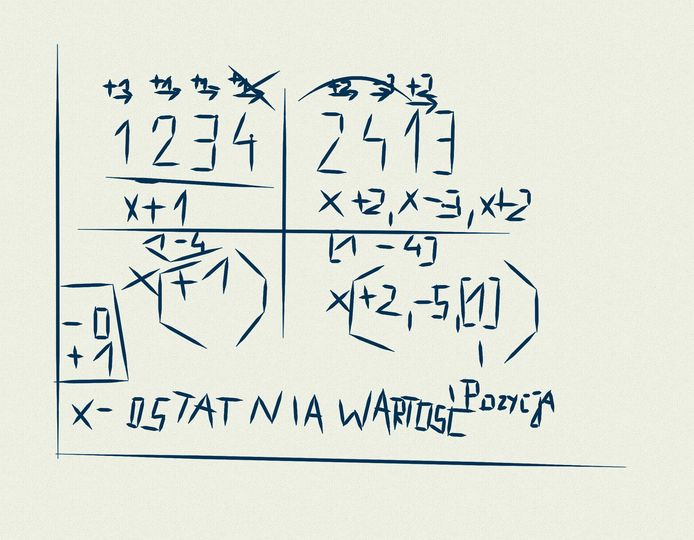 +1 +1 +1
1 2 3 4
x+1
1-4
x(+1)
+2 -3 +2
2 4 1 3
x+2, x-3, x+2
[1 - 4]
x(+2, -5, [1])
- 0
+ 1
x- OSTATNIA WARTOŚĆ
POZYCJA